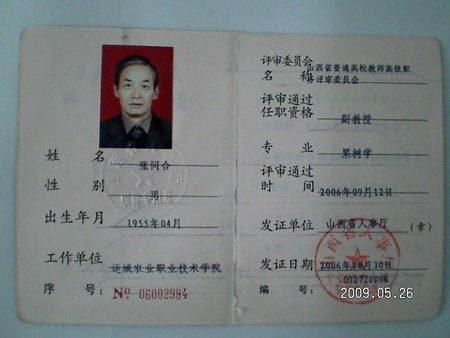 姓名 张同合
性别 男
出生年月 1955年04月
工作单位 运城农业职业技术学院
序号: No 06002984
评审委员会名称 山西省普通高校教师高级职务评审委员会
评审通过任职资格 副教授
专业 果树学
评审通过时间 2006年09月12日
发证单位 山西省人事厅 (章)
发证日期 2006年10月30日
编号:
2009.05.26